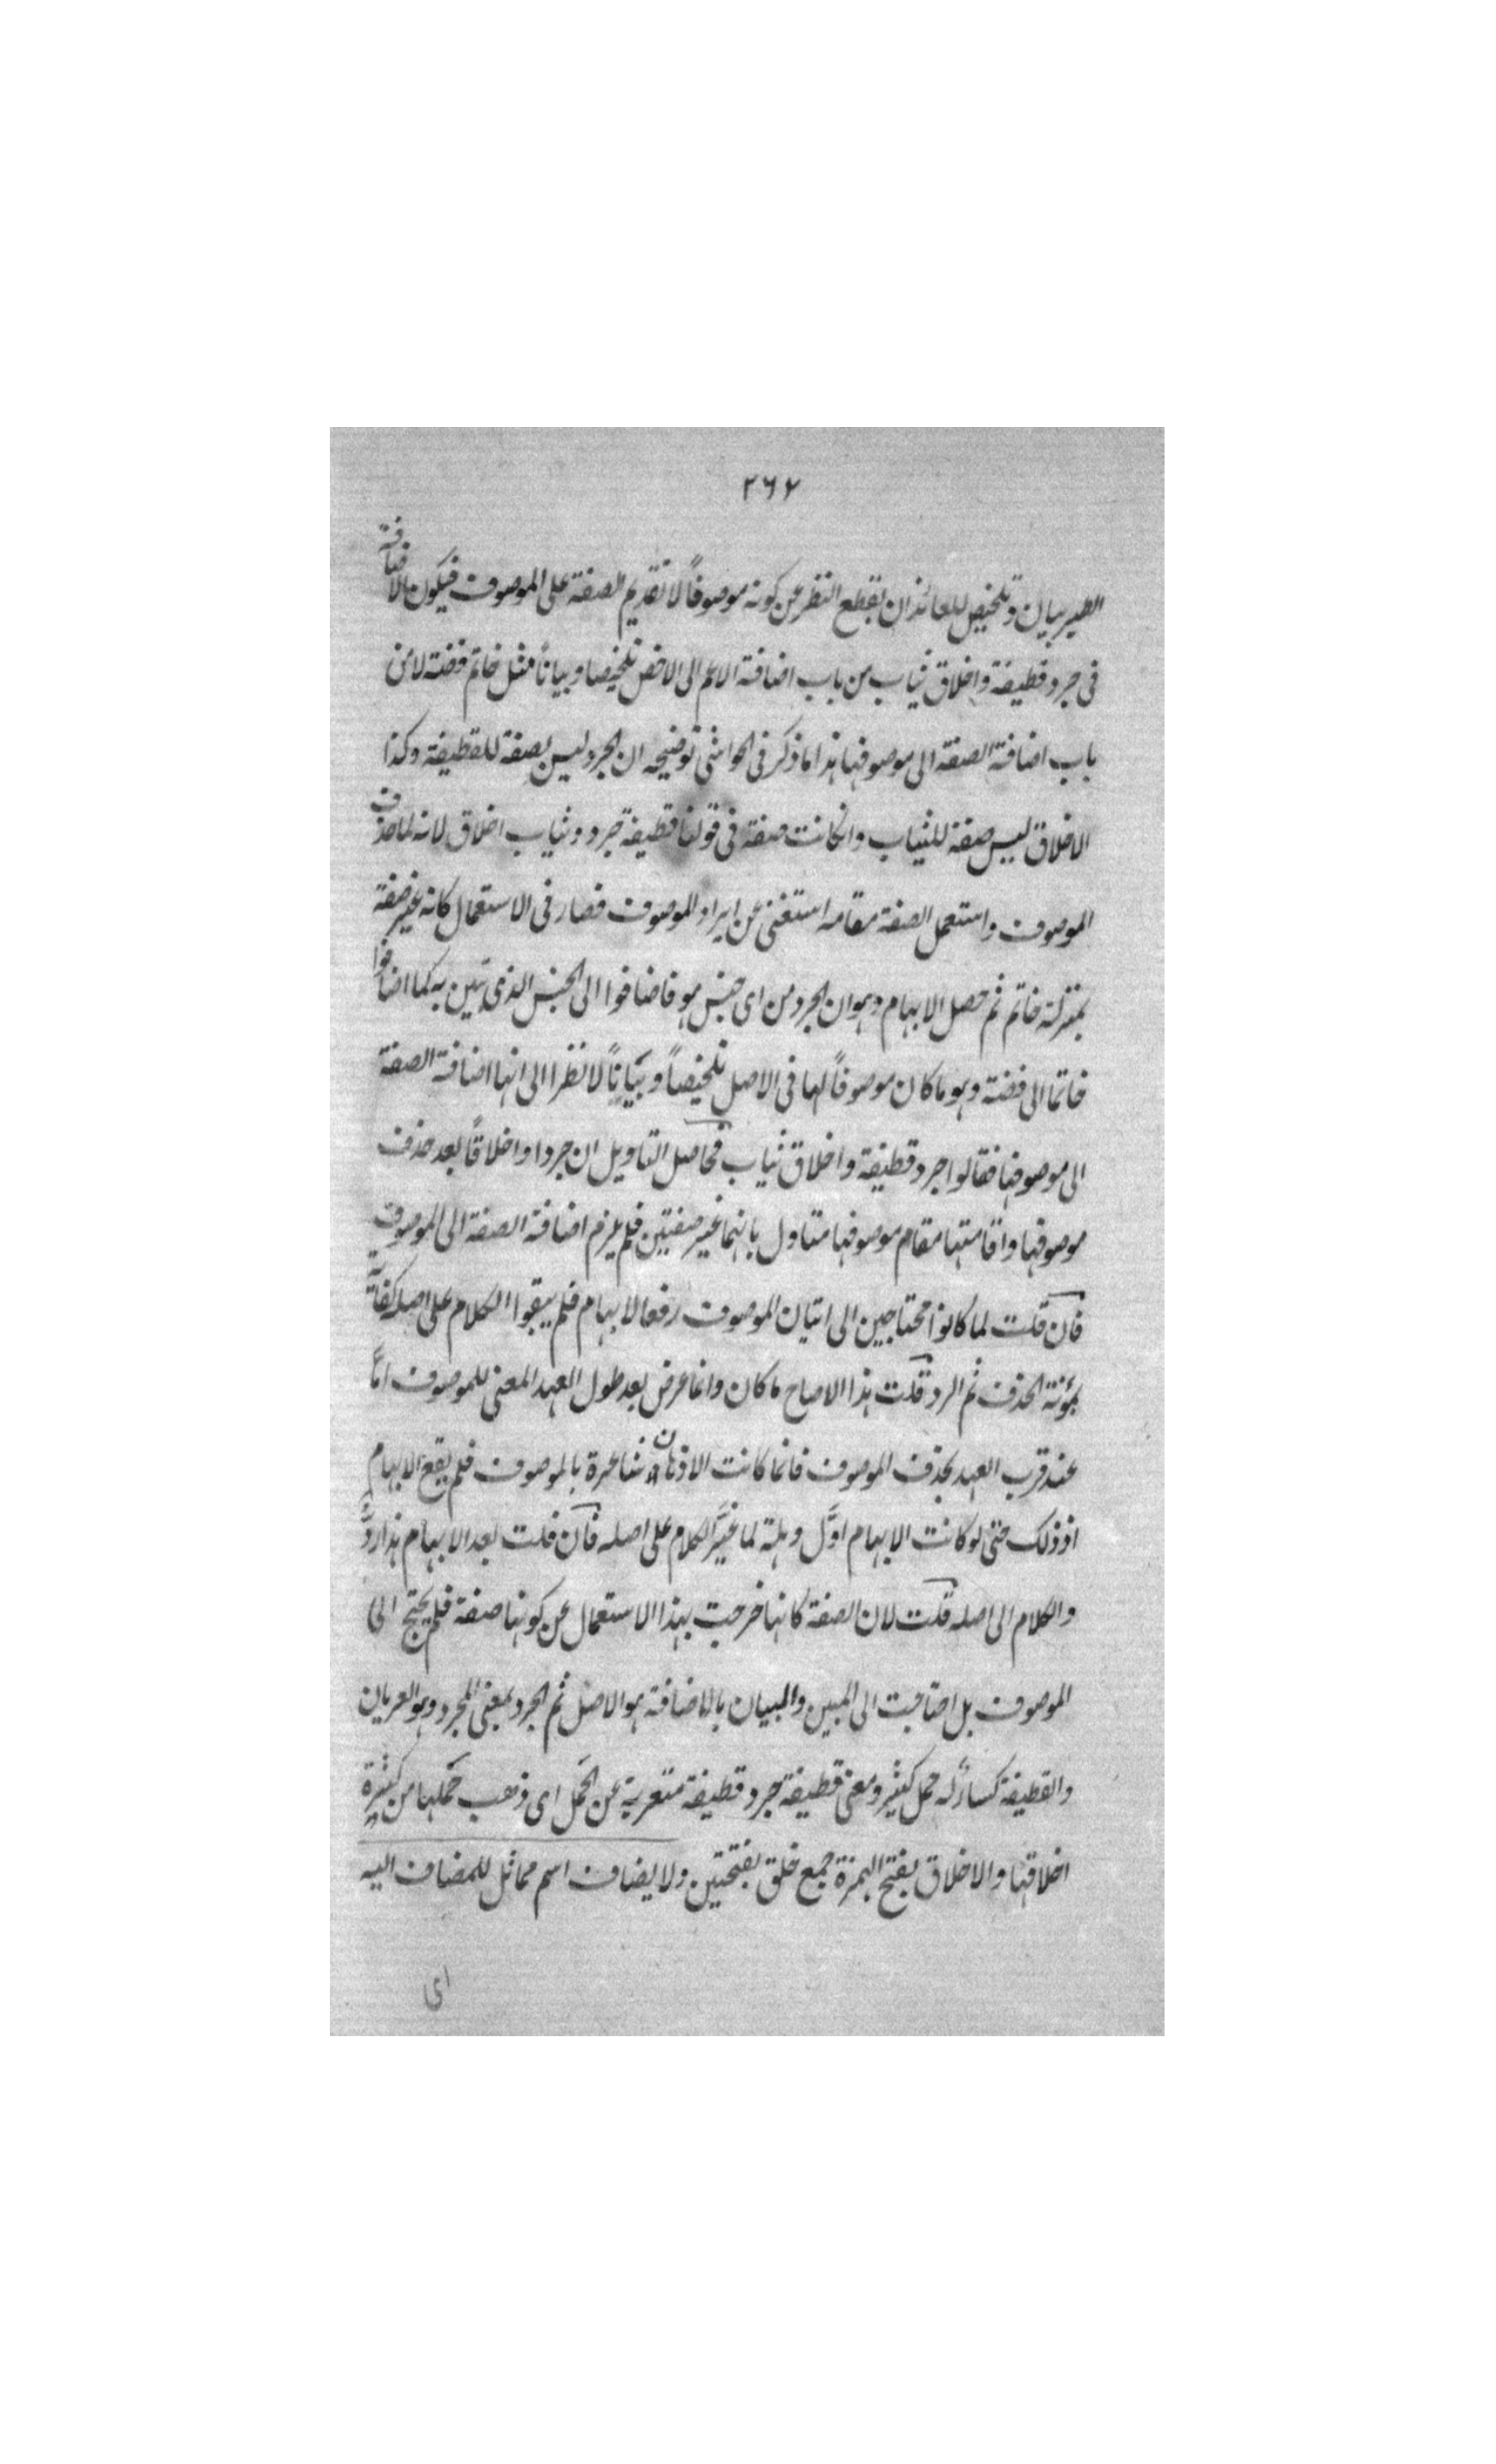 ٢٦٢
الطير بيان وتلخيص للعائذ ان يقطع النظر عن كونه موصوفاً لا تقديم الصفة على الموصوف فيكون الاضافة
فى جرد قطيفة واخلاق ثياب من باب اضافة الاعم الى الاخص تلخيصا وبياناً مثل خاتم فضة لا من
باب اضافة الصفة الى موصوفها هذا ما ذكر فى الحواشى توضيحه ان الجرد ليس بصفة للقطيفة وكذا
الاخلاق ليس صفة للثياب وان كانت صفة فى قولنا قطيفة جرد وثياب اخلاق لانه لما حذف
الموصوف واستعمل الصفة مقامه استغنى عن ايراد الموصوف فصار فى الاستعمال كانه غير صفة
بمنزلة خاتم ثم حصل الابهام وهو ان الجرد من اى جنس هو فاضافوا الى الجنس الذى تبين به كما اضافوا
خاتما الى فضة وهو ما كان موصوفاً لها فى الاصل تلخيصاً وبياناً لا نظرا الى انها اضافة الصفة
الى موصوفها فقالوا جرد قطيفة واخلاق ثياب فحاصل التاويل ان جردا واخلاقاً بعد حذف
موصوفها واقامتها مقام موصوفها متاول بانهما غير صفتين فلم يلزم اضافة الصفة الى الموصوف
فان قلت لما كانوا محتاجين الى اتيان الموصوف رفعا لابهام فلم يبقوا الكلام على اصله كفاية
بمؤنة الحذف ثم الرد قلت هذا الاصاح ما كان وانما عرض بعد طول العهد المعنى للموصوف اما
عند قرب العهد بحذف الموصوف فانما كانت الاذهان شاعرة بالموصوف فلم يقع الابهام
اذ ذلك حتى لو كانت الابهام اوّل وهلة لما غيّر الكلام على اصله فان قلت بعد الابهام هذا ردّ
والكلام الى اصله قلت لان الصفة كانها خرجت بهذا الاستعمال عن كونها صفة فلم يحتج الى
الموصوف بل اضافت الى المبين والبيان بالاضافة هو الاصل ثم الجرد بمعنى المجرد وهو العريان
والقطيفة كساء له خمل كثير ومعنى قطيفة جرد قطيفة متعرية عن الخمل اى ذهب خملها من كثرة
اخلاقها والاخلاق بفتح الهمزة جمع خلق بفتحتين ولا يضاف اسم مماثل للمضاف اليه
اى